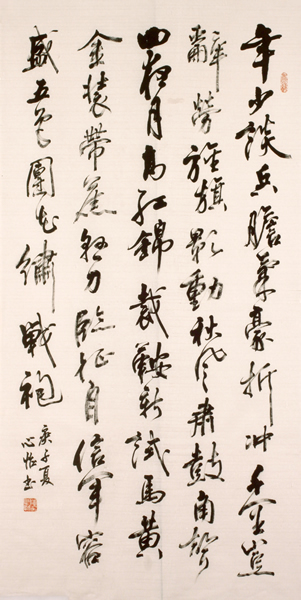 年少談兵膽氣豪折冲千里豈
辭勞旌旗影動秋風肅鼓角聲
回夜月高紅錦裁鞍新試馬黃
金裝帶舊懸刀臨征自信軍容
盛五色團花繡戰袍
庚子夏
心怡书